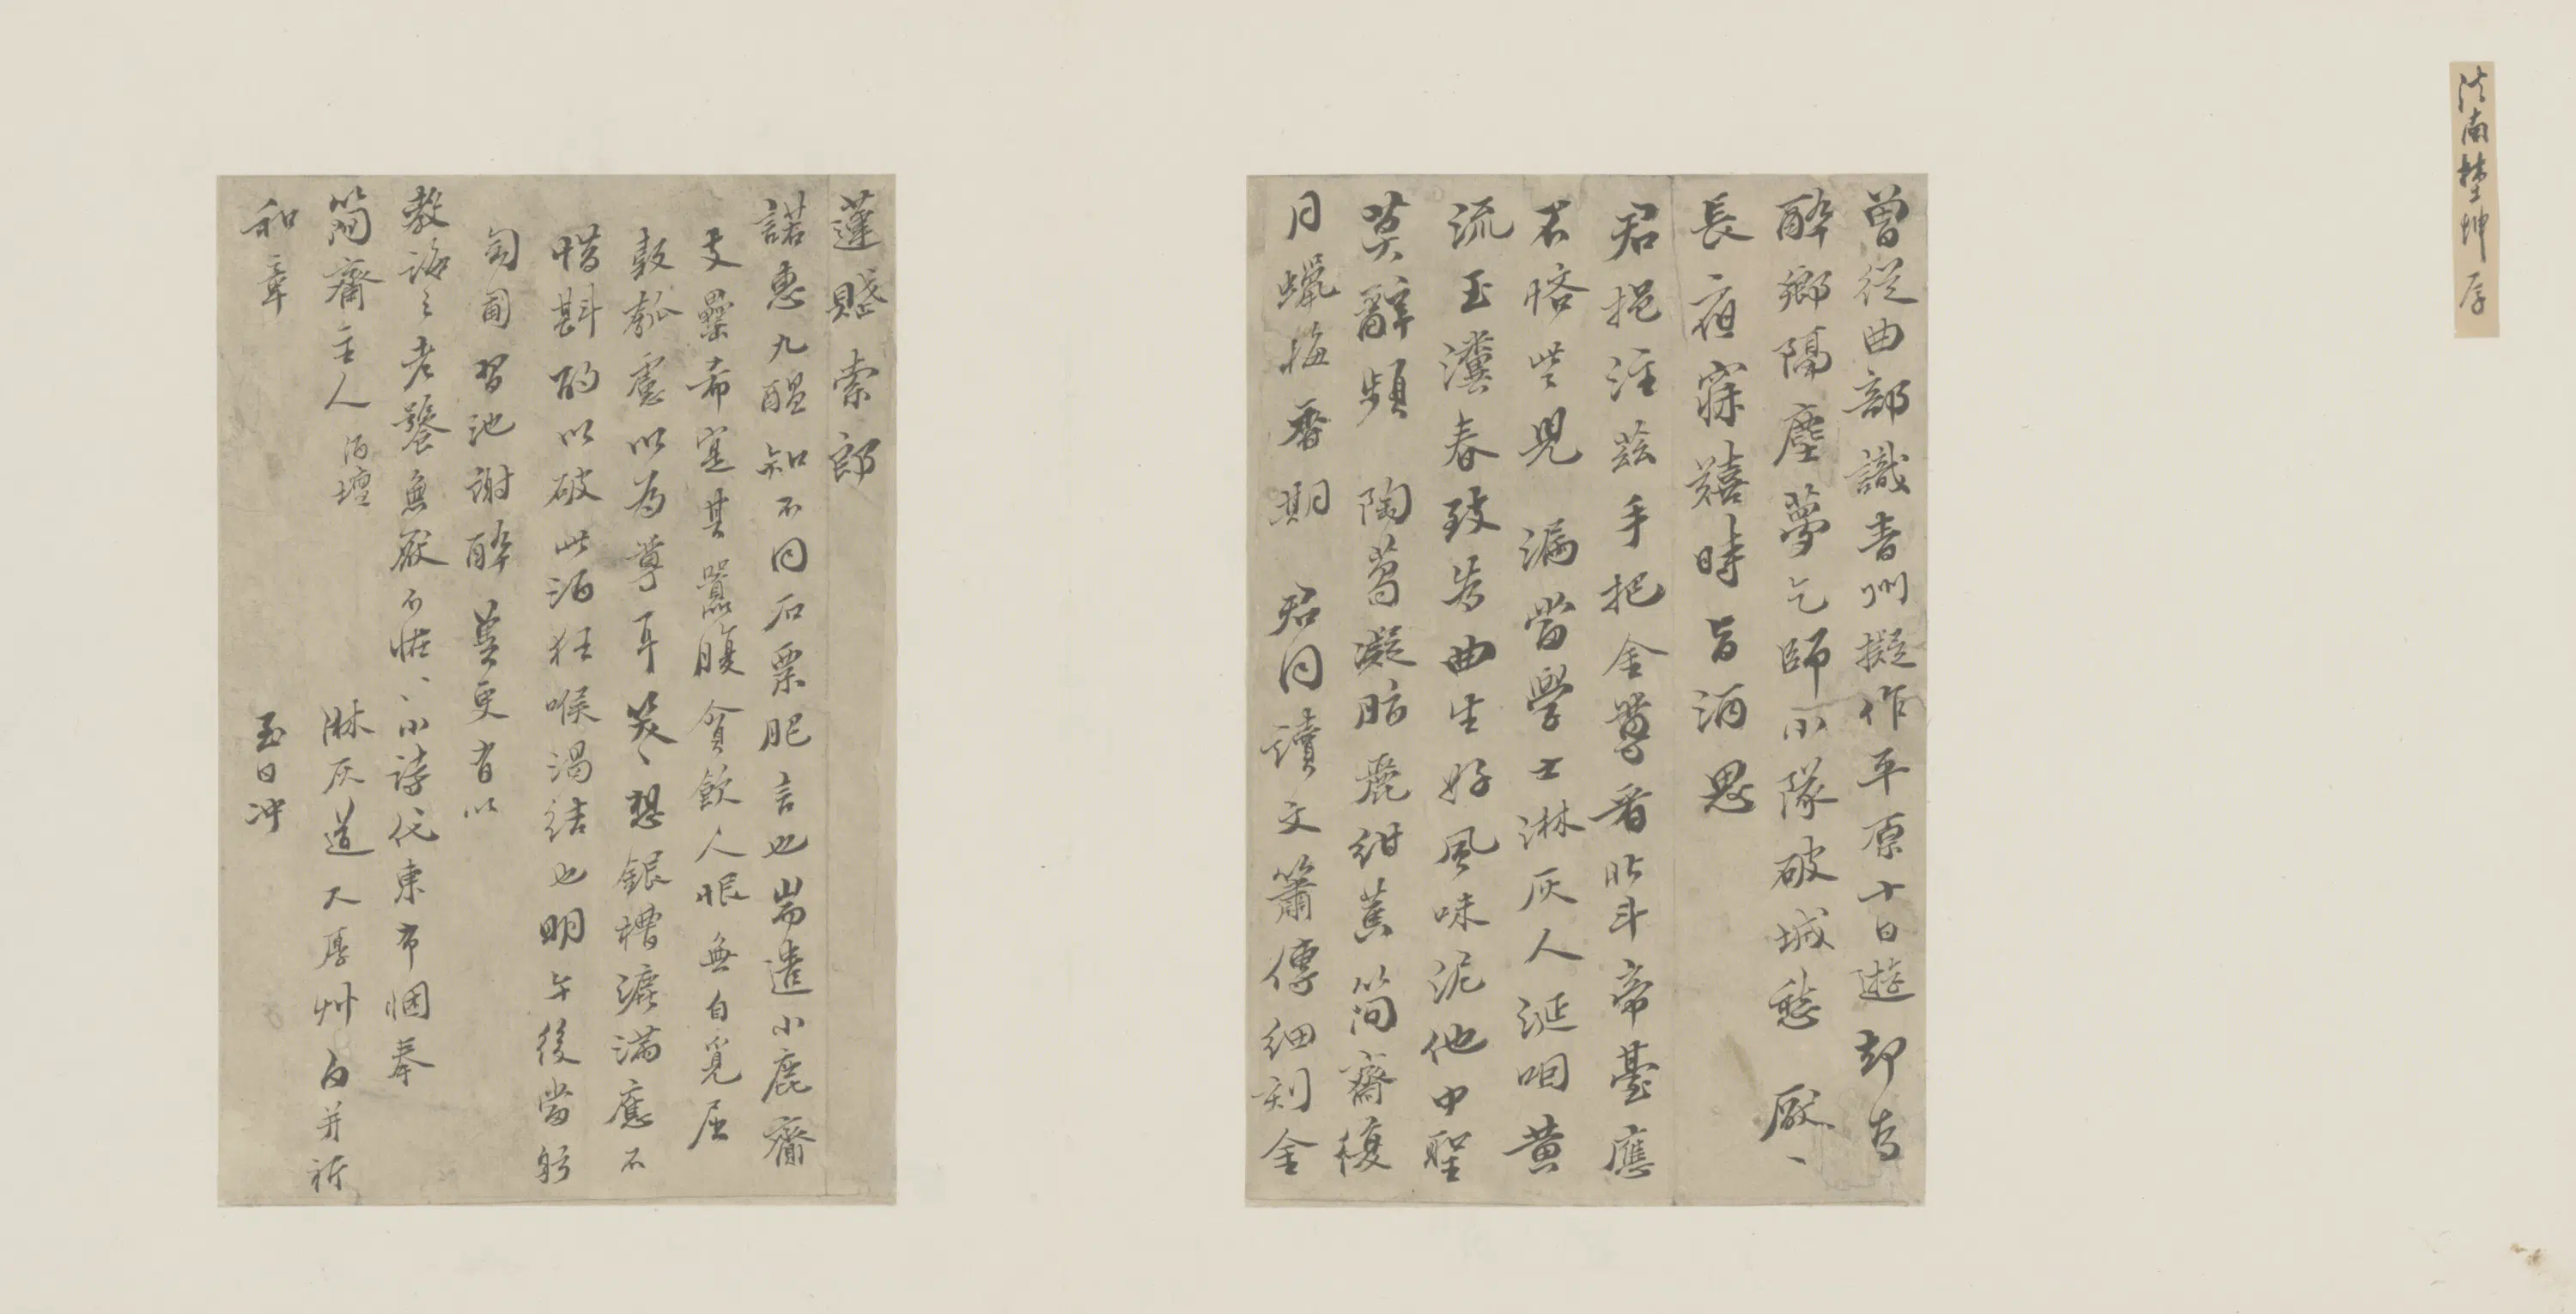 曾從曲部識青州擬作平原十日遊却為
醉鄉隔塵夢乞師小隊破城愁 厭、
長夜寐穎時旨酒思
君挹注茲手把金尊看北斗帝臺應
不惜些兒 漏當學士淋灰人涎咽黃
流玉瓚春致為曲生好風味泥他中聖
莫辭頻 陶葛凝脂麂紺蕉簡齋複
日蠟梅香期 君同讀文簫傳細刻金
蓮賭索郎
諾惠九醞知不同石粟肥言也耑遣小鹿齋
支罍希寔其罌腹貧飲人眼無自覓屈
穀瓠處以為尊耳笑、想銀槽漉滿應不
惜斟酌以破此酒狂喉渴結也明午後當躬
匍匐習池謝醉 更有以
教誨之老饕無厭不怪、小詩代柬布悃奉
簡齋主人 酒壇 淋灰道人厚艸白并祈
和章 至日沖